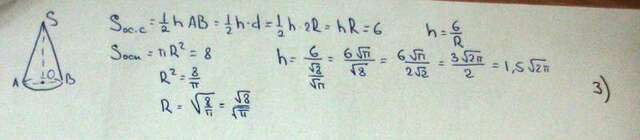 S
A O B
Sос.с = ½ h AB = ½ h·d = ½ h·2R = hR = 6   h = 6/R
Sосн = πR² = 8   h = 6/(√8/√π) = 6√π/√8 = 6√π/2√2 = 3√2π/2 = 1,5√2π
R² = 8/π
R = √(8/π) = √8/√π
3)